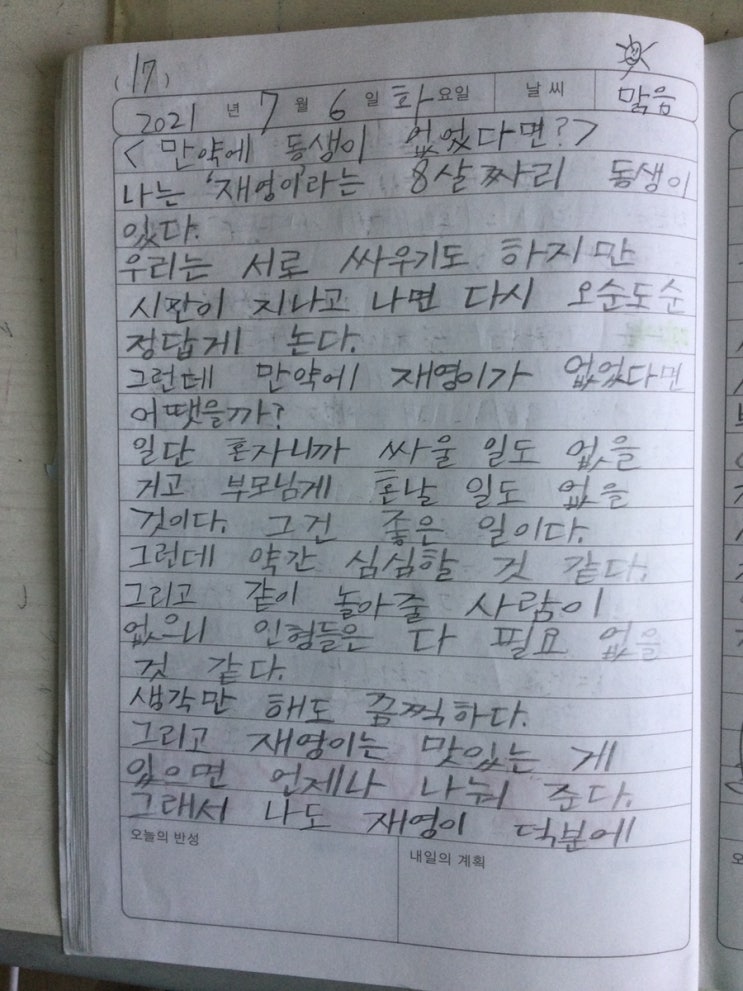 (17)
2021 년 7 월 6 일 화 요일 날씨 맑음
< 만약에 동생이 없었다면? >
나는 '재영이'라는 8살짜리 동생이
있다.
우리는 서로 싸우기도 하지만
시간이 지나고 나면 다시 오순도순
정답게 논다.
그런데 만약에 재영이가 없었다면
어땟을까?
일단 혼자니까 싸울 일도 없을
거고 부모님게 혼날 일도 없을
것이다. 그건 좋은 일이다.
그런데 약간 심심할 것 같다.
그리고 같이 놀아줄 사람이
없으니 인형들은 다 필요 없을
것 같다.
생각만 해도 끔찍하다.
그리고 재영이는 맛있는 게
있으면 언제나 나눠 준다.
그래서 나도 재영이 덕분에
오늘의 반성
내일의 계획